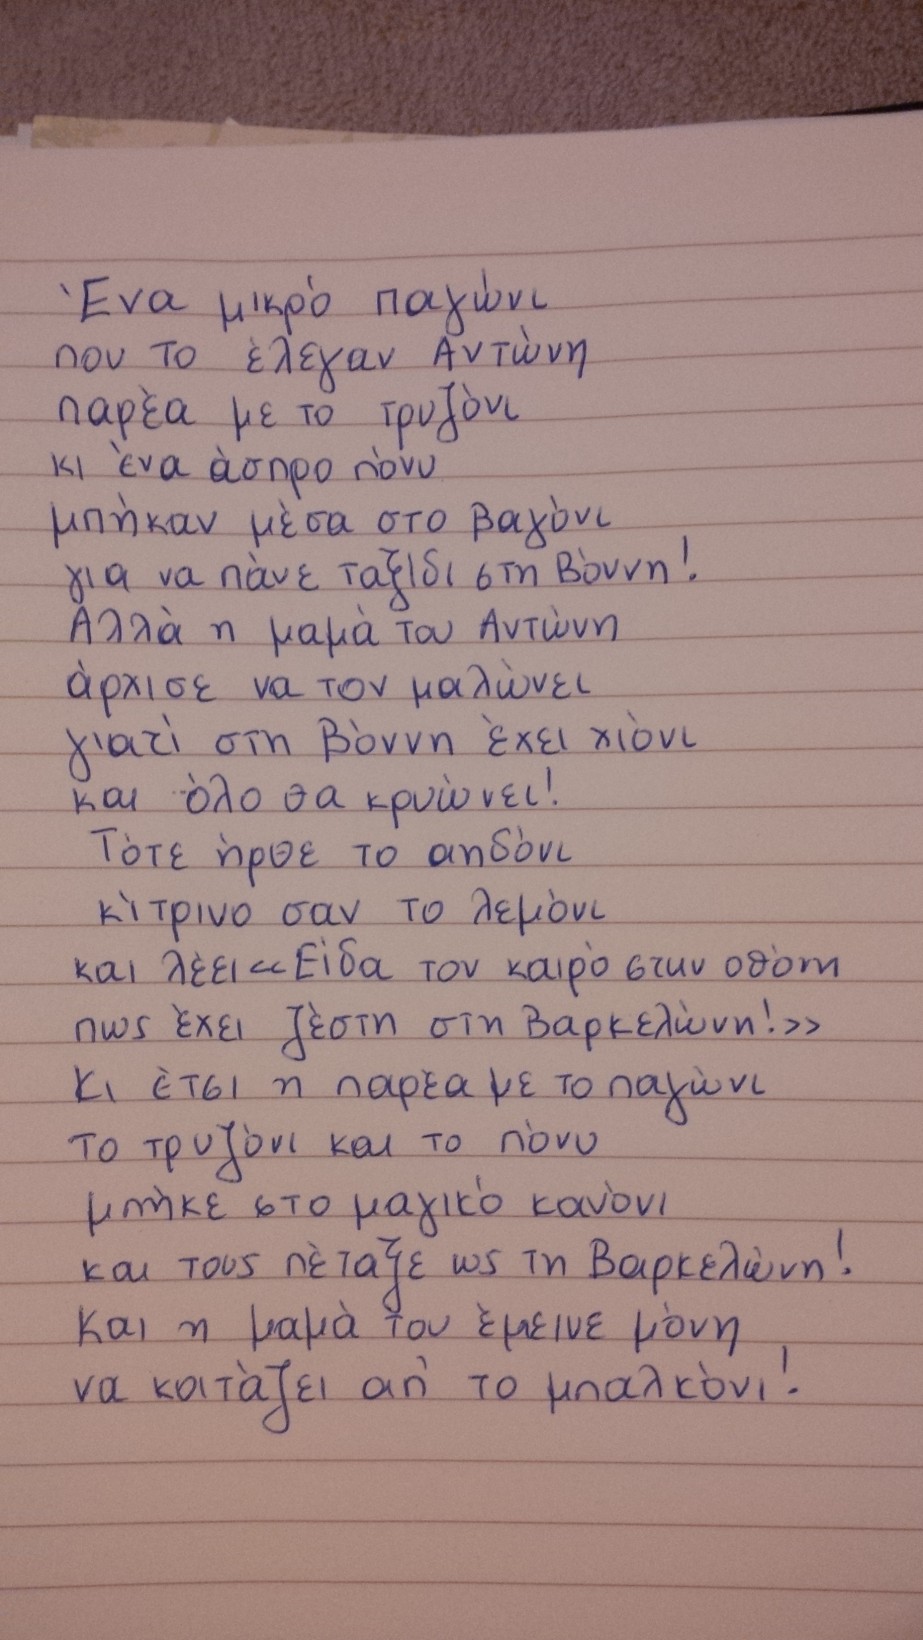 Ένα μικρό παγώνι
που το έλεγαν Αντώνη
παρέα με το τρυζόνι
κι ένα άσπρο πόνυ
μπήκαν μέσα στο βαγόνι
για να πάνε ταξίδι στη Βόννη!
Αλλά η μαμά του Αντώνη
άρχισε να τον μαλώνει
γιατί στη Βόννη έχει χιόνι
και όλο θα κρυώνει!
Τότε ήρθε το αηδόνι
κίτρινο σαν το λεμόνι
και λέει «Είδα τον καιρό στην οθόνη
πως έχει ζέστη στη Βαρκελώνη!»
Κι έτσι η παρέα με το παγώνι
το τρυζόνι και το πόνυ
μπήκε στο μαγικό κανόνι
και τους πέταξε ως τη Βαρκελώνη!
Και η μαμά του έμεινε μόνη
να κοιτάζει απ' το μπαλκόνι!